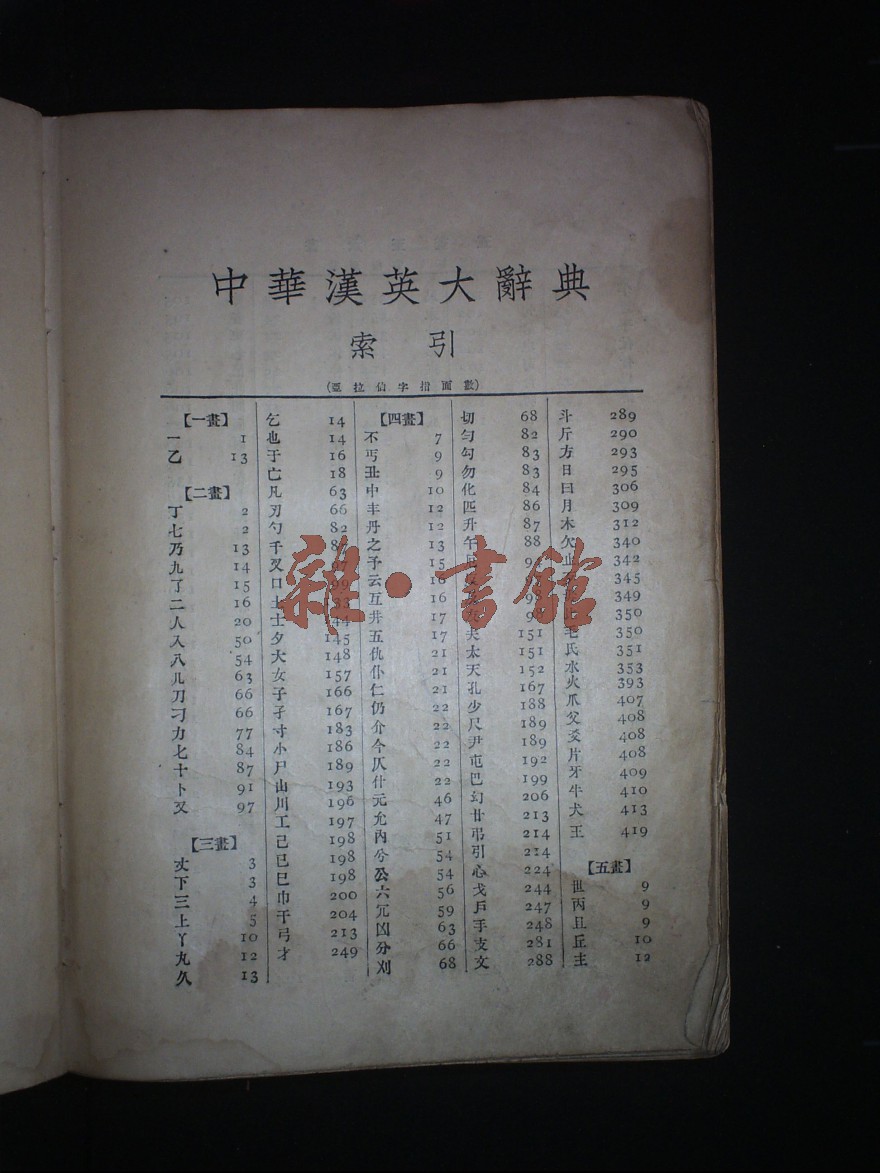 中華漢英大辭典
索引
(亞拉伯字指面數)
【一畫】
一 1
乙 13
【二畫】
丁 2
七 2
乃 13
九 14
了 15
二 16
人 20
入 50
八 54
儿 63
刀 66
刁 66
力 77
匕 84
十 87
卜 91
又 97
【三畫】
丈 3
下 3
三 4
上 5
丫 10
丸 12
久 13
乞 14
也 14
于 16
亡 18
凡 63
刃 66
勺 82
千 87
叉
口 99
土
士 144
夕 145
大 148
女 157
子 166
孑 167
寸 183
小 186
尸 189
山 193
川 196
工 197
己 198
已 198
巳 198
巾 200
干 204
弓 213
才 249
【四畫】
不 7
丐 9
丑 9
中 10
丰 12
丹 12
之 13
予 15
云 16
互 16
井 17
五 17
仇 21
仆 21
仁 21
仍 22
介 22
今 22
仄 22
什 22
元 46
允 47
內 51
兮 54
公 54
六 56
冗 59
凶 63
分 66
刈 68
切 68
勻 82
勾 83
勿 83
化 84
匹 86
升 87
午 88
夫 151
太 151
天 152
孔 167
少 188
尺 189
尹 189
屯 192
巴 199
幻 206
廿 213
弔 214
引 214
心 224
戈 244
戶 247
手 248
支 281
文 288
斗 289
斤 290
方 293
日 295
曰 306
月 309
木 312
欠 340
止 342
345
349
350
毛 350
氏 351
水 353
火 393
爪 407
父 408
爻 408
片 408
牙 409
牛 410
犬 413
王 419
【五畫】
世 9
丙 9
且 9
丘 10
主 12
雜·書館